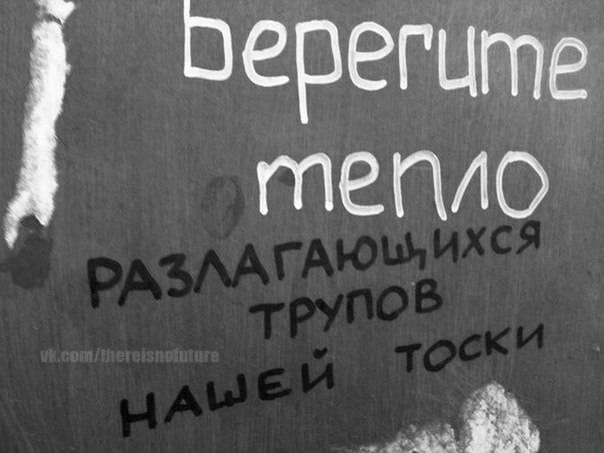 Берегите
тепло
РАЗЛАГАЮЩИХСЯ
ТРУПОВ
vk.com/thereisnofuture
НАШЕЙ ТОСКИ